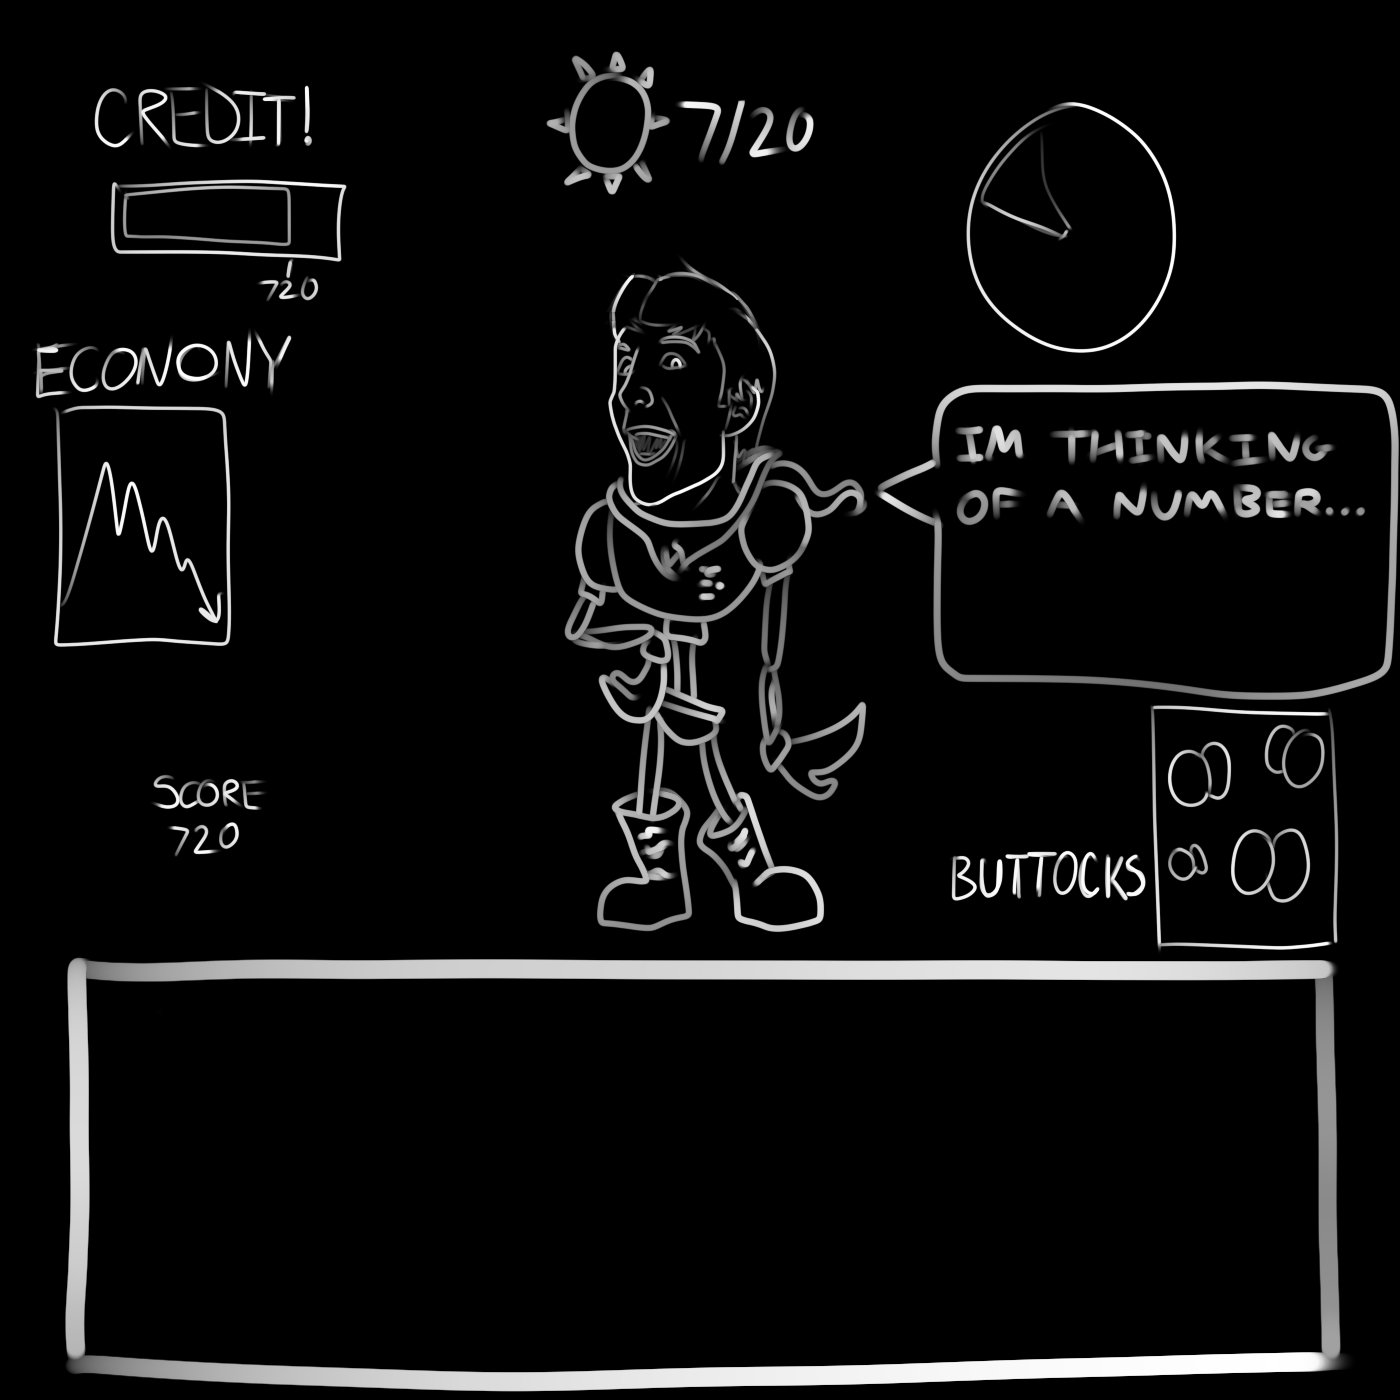 CREDIT!
720
7/20
ECONONY
IM THINKING
OF A NUMBER...
SCORE
720
BUTTOCKS